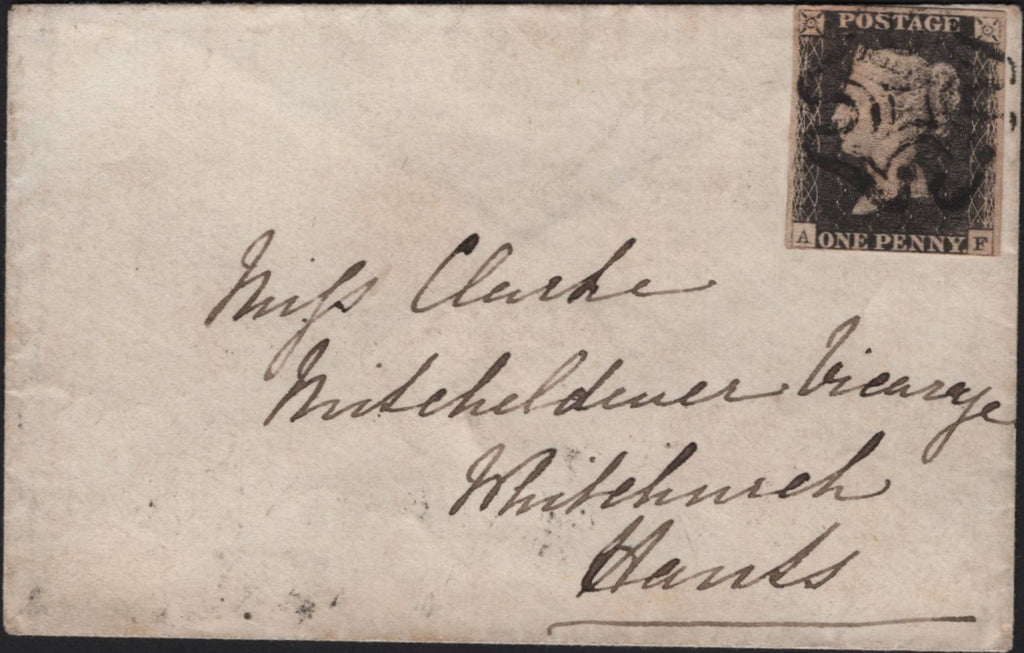 POSTAGE
A ONE PENNY F
Miss Clarke
Mitcheldever Vicarage
Whitchurch
Hants